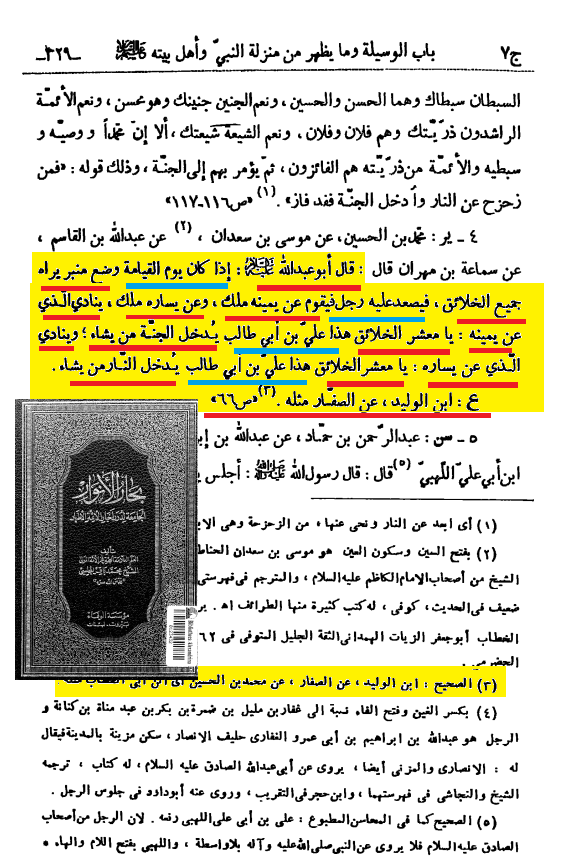 ج٧ باب الوسيلة وما يظهر من منزلة النبيّ وأهل بيته ﷺ ـ٣٢٩ـ
السبطان سبطاك وهما الحسن والحسين ، ونعم الجنين جنينك وهو محسن ، ونعم الأئمّة
الراشدون ذرّيّتك وهم فلان وفلان ، ونعم الشيعة شيعتك ، ألا إنّ محمّداً و وصيّه و
سبطيه والأئمّة من ذرّيّته هم الفائزون ، ثمّ يؤمر بهم إلى الجنّة ، وذلك قوله : «فمن
زحزح عن النار وأُدخل الجنّة فقد فاز» . (١) «ص١١٦ـ١١٧»
٤ ـ ير : محمّد بن الحسين ، عن موسى بن سعدان ، (٢) عن عبدالله بن القاسم ،
عن سماعة بن مهران قال : قال أبوعبدالله عليه السلام : إذا كان يوم القيامة وضع منبر يراه
جميع الخلائق ، فيصعد عليه رجل فيقوم عن يمينه ملك ، وعن يساره ملك ، ينادي الّذي
عن يمينه : يا معشر الخلائق هذا عليّ بن أبي طالب يُدخل الجنّة من يشاء ؛ وينادي
الّذي عن يساره : يا معشر الخلائق هذا عليّ بن أبي طالب يُدخل النّار من يشاء .
ع : ابن الوليد ، عن الصفّار مثله . (٣) «ص٦٦»
٥ ـ سن : عبدالرّحمن بن حمّاد ، عن عبدالله بن
ابن أبي عليّ اللّهبيّ (٥) قال : قال رسول الله ﷺ : أجلس
(١) أى ابعد عن النار ونحى عنها ، من الزحزحة وهى
(٢) بفتح السين وسكون العين هو موسى بن سعدان الحناط
الشيخ من أصحاب الامام الكاظم عليه السلام ، والمترجم فى فهرستى
ضعيف فى الحديث ، كوفى ، له كتب كثيرة منها الطرائف اه .
الخطاب أبوجعفر الزيات الهمدانى الثقة الجليل المتوفى فى ٢٦٢
الحضرمى .
(٣) الصحيح : ابن الوليد ، عن الصفار ، عن محمد بن الحسين
(٤) بكسر الغين وفتح الفاء نسبة الى غفار بن مليل بن ضمرة بن بكر بن عبد مناة بن كنانة و
الرجل هو عبدالله بن ابراهيم بن أبى عمرو الغفارى حليف الانصار ، سكن مزينة بالمدينة فيقال
له : الانصارى والمزنى أيضا ، يروى عن أبى عبدالله الصادق عليه السلام ، له كتاب ، ترجمه
الشيخ والنجاشى فى فهرستهما ، وابن حجر فى التقريب ، وروى عنه أبوداود فى جلوس الرجل .
(٥) الصحيح كما فى المحاسن المطبوع : على بن أبى على اللهبى رفعه . لان الرجل من أصحاب
الصادق عليه السلام فلا يروى عن النبى صلى الله عليه وآله بلاواسطة ، واللهبى بفتح اللام والهاء •
بحار الأنوار
الجامعة لدرر أخبار الأئمة الأطهار
تأليف
مؤسسة الوفاء